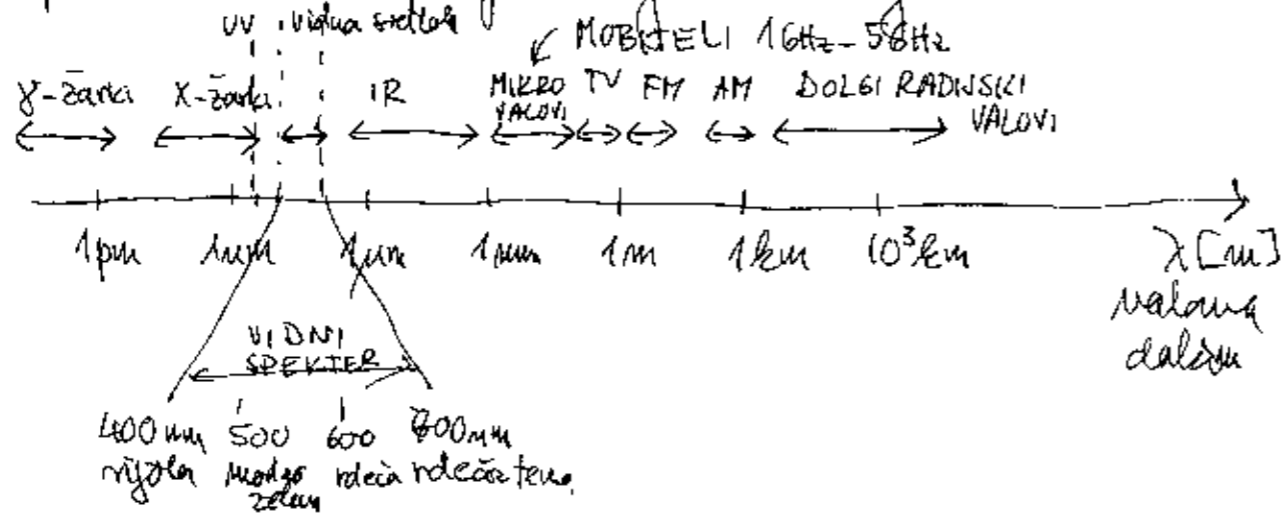 UV vidna svetloba
MOBITELI 1GHz - 5GHz
γ-žarki X-žarki IR MIKRO VALOVI TV FM AM DOLGI RADIJSKI VALOVI
1pm 1nm 1μm 1mm 1m 1km 10³km λ[m]
valovna
VIDNI
SPEKTER
400 nm 500 600 800nm
vijola modro rdeča rdeča
zelena